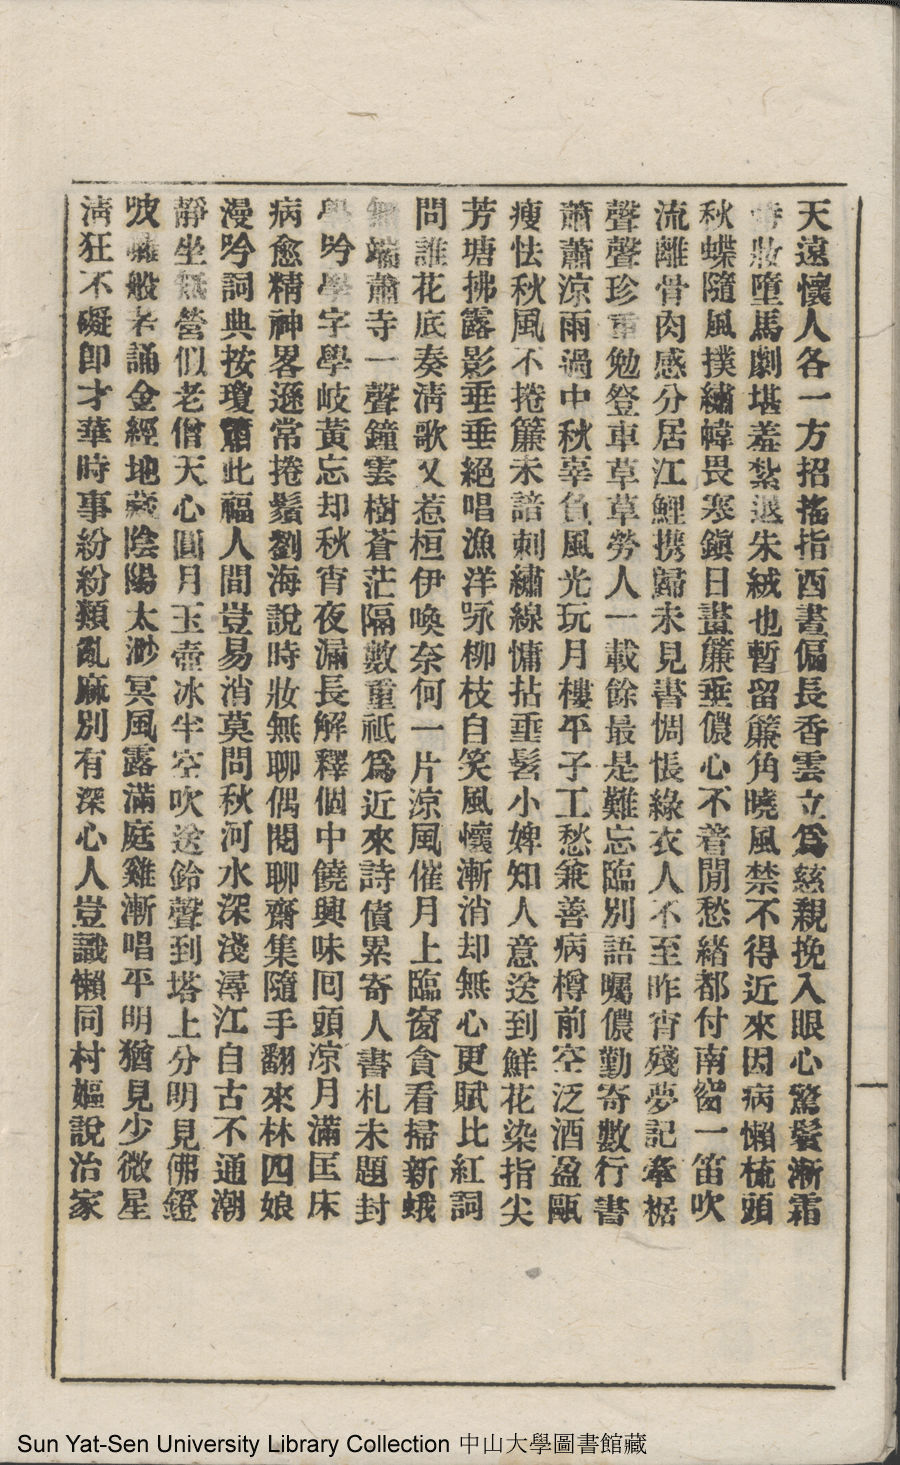 天遠懷人各一方招搖指酉晝偏長香雲立爲慈親挽入眼心驚鬢漸霜
妝墮馬劇堪羞紮遏朱絨也暫留簾角曉風禁不得近來因病懶梳頭
秋蝶隨風撲繡幃畏寒鎭日畫簾垂儂心不着閒愁緒都付南窗一笛吹
流離骨肉感分居江鯉携歸未見書惆悵綠衣人不至昨宵殘夢記牽裾
聲聲珍重勉登車草草勞人一載餘最是難忘臨別語囑儂勤寄數行書
蕭蕭涼雨過中秋辜負風光玩月樓平子工愁兼善病樽前空泛酒盈甌
瘦怯秋風不捲簾未諳刺繡線慵拈垂髫小婢知人意送到鮮花染指尖
芳塘拂露影垂垂絕唱漁洋咏柳枝自笑風懷漸消却無心更賦比紅詞
問誰花底奏淸歌又惹桓伊喚奈何一片涼風催月上臨窗貪看掃新蛾
無端蕭寺一聲鐘雲樹蒼茫隔數重祇爲近來詩債累寄人書札未題封
學吟學字學岐黃忘却秋宵夜漏長解釋個中饒興味回頭涼月滿匡床
病愈精神畧遜常捲鬚劉海說時妝無聊偶閱聊齋集隨手翻來林四娘
漫吟詞典按瓊簫此福人間豈易消莫問秋河水深淺潯江自古不通潮
靜坐無營似老僧天心圓月玉壺冰半空吹送鈴聲到塔上分明見佛鐙
唆囌般若誦金經地藏陰陽太渺冥風露滿庭雞漸唱平明猶見少微星
淸狂不礙卽才華時事紛紛類亂麻別有深心人豈識懶同村嫗說治家
Sun Yat-Sen University Library Collection 中山大學圖書館藏